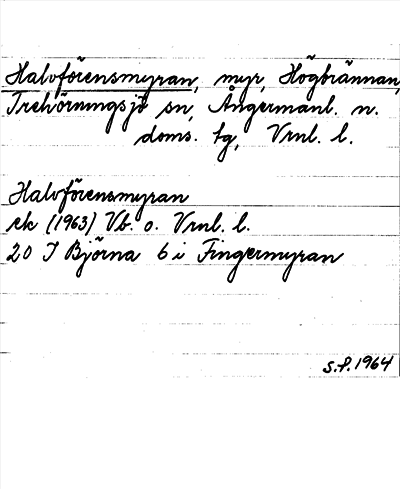 Halvförensmyran, myr, Högbrännan,
Trehörningsjö sn, Ångermanl. n.
doms. tg, Vrnl. l.
Halvförensmyran
ek (1963) Vb. o. Vrnl. l.
20 I Björna 6 i Fingermyran
S.P. 1964